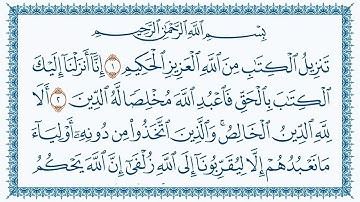 بِسْمِ اللَّهِ الرَّحْمَٰنِ الرَّحِيمِ
تَنزِيلُ الْكِتَابِ مِنَ اللَّهِ الْعَزِيزِ الْحَكِيمِ ١ إِنَّا أَنزَلْنَا إِلَيْكَ
الْكِتَابَ بِالْحَقِّ فَاعْبُدِ اللَّهَ مُخْلِصًا لَّهُ الدِّينَ ٢ أَلَا
لِلَّهِ الدِّينُ الْخَالِصُ ۚ وَالَّذِينَ اتَّخَذُوا مِن دُونِهِ أَوْلِيَاءَ
مَا نَعْبُدُهُمْ إِلَّا لِيُقَرِّبُونَا إِلَى اللَّهِ زُلْفَىٰ إِنَّ اللَّهَ يَحْكُمُ